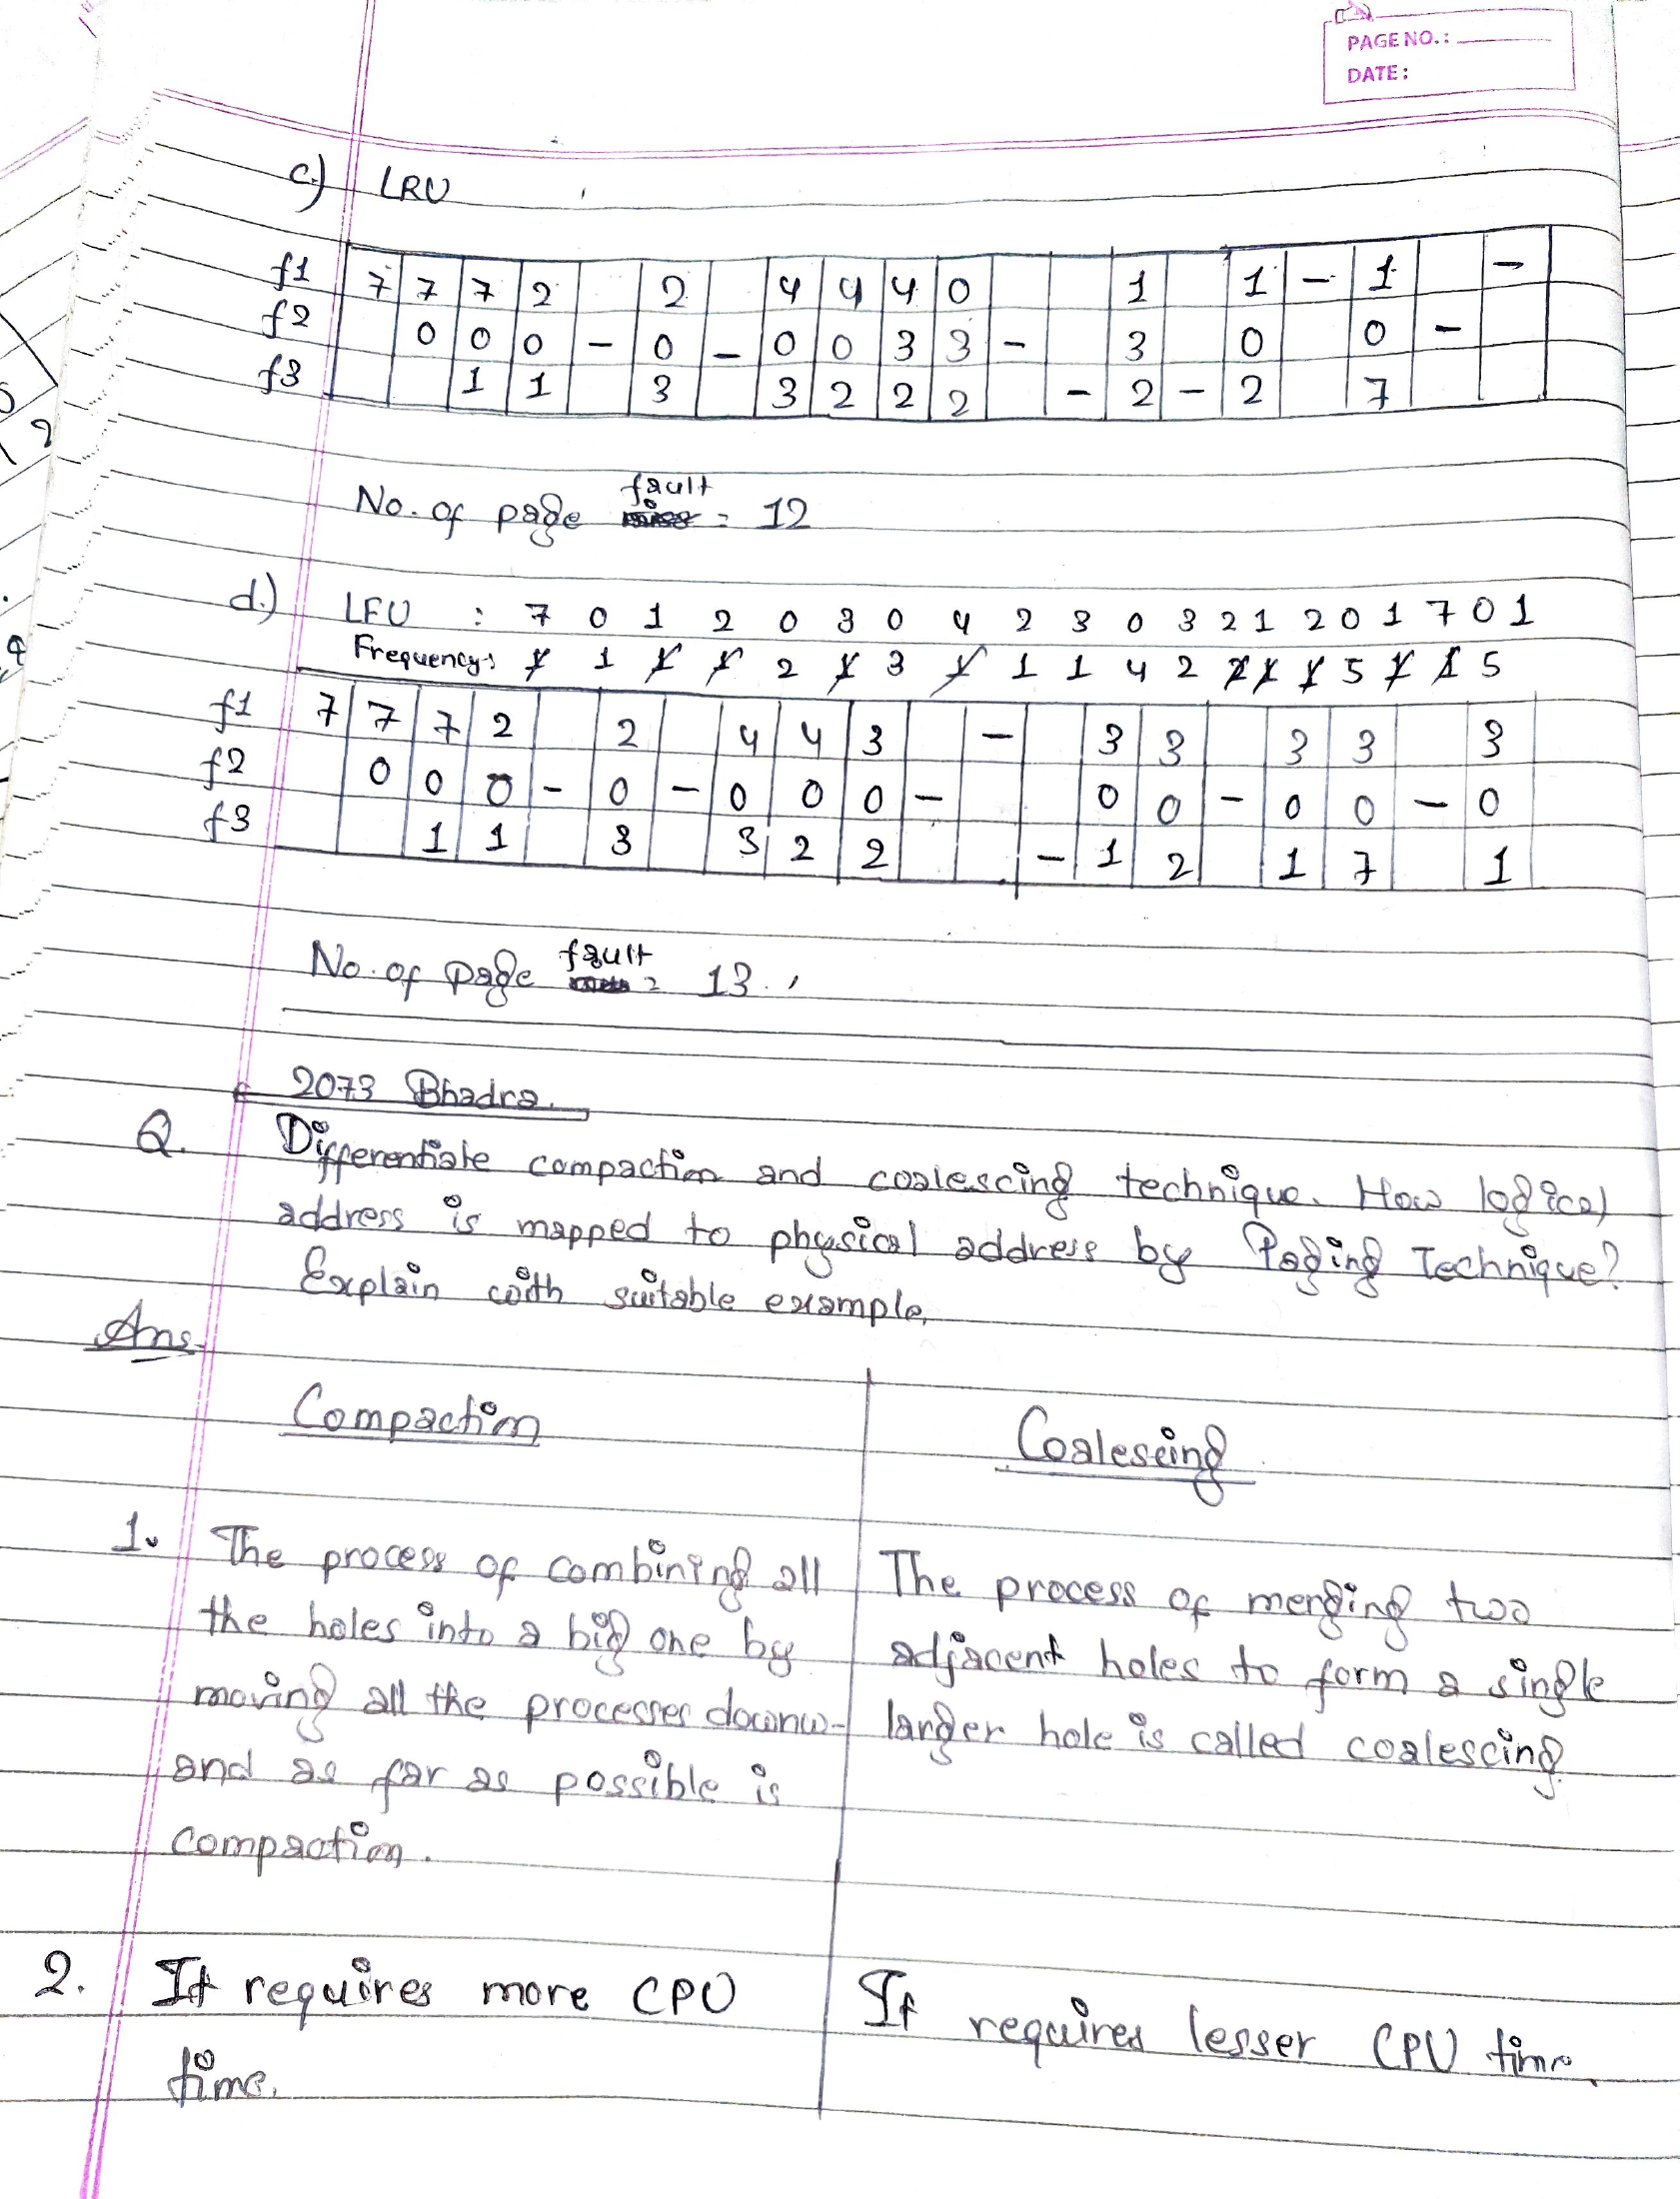 PAGE NO.:
DATE:
c) LRU
f1 7 7 7 2 2 4 4 4 0 1 1 - 1 -
f2 0 0 0 - 0 - 0 0 3 3 - 3 0 0 -
f3 1 1 3 3 2 2 2 - 2 - 2 7
fault
No. of page = 12
d.) LFU : 7 0 1 2 0 3 0 4 2 3 0 3 2 1 2 0 1 7 0 1
Frequency: 1 1 1 1 2 1 3 1 1 1 4 2 2 1 1 5 1 1 5
f1 7 7 7 2 2 4 4 3 - 3 3 3 3 3
f2 0 0 0 - 0 - 0 0 0 - 0 0 - 0 0 - 0
f3 1 1 3 3 2 2 - 1 2 1 7 1
fault
No. of page = 13.
2073 Bhadra.
Q. Differentiate compaction and coalescing technique. How logical
address is mapped to physical address by Paging Technique?
Explain with suitable example.
Ans.
Compaction Coalescing
1. The process of combining all The process of merging two
the holes into a big one by adjacent holes to form a single
moving all the processes downw- larger hole is called coalescing.
and as far as possible is
compaction.
2. It requires more CPU It requires lesser CPU time.
time.